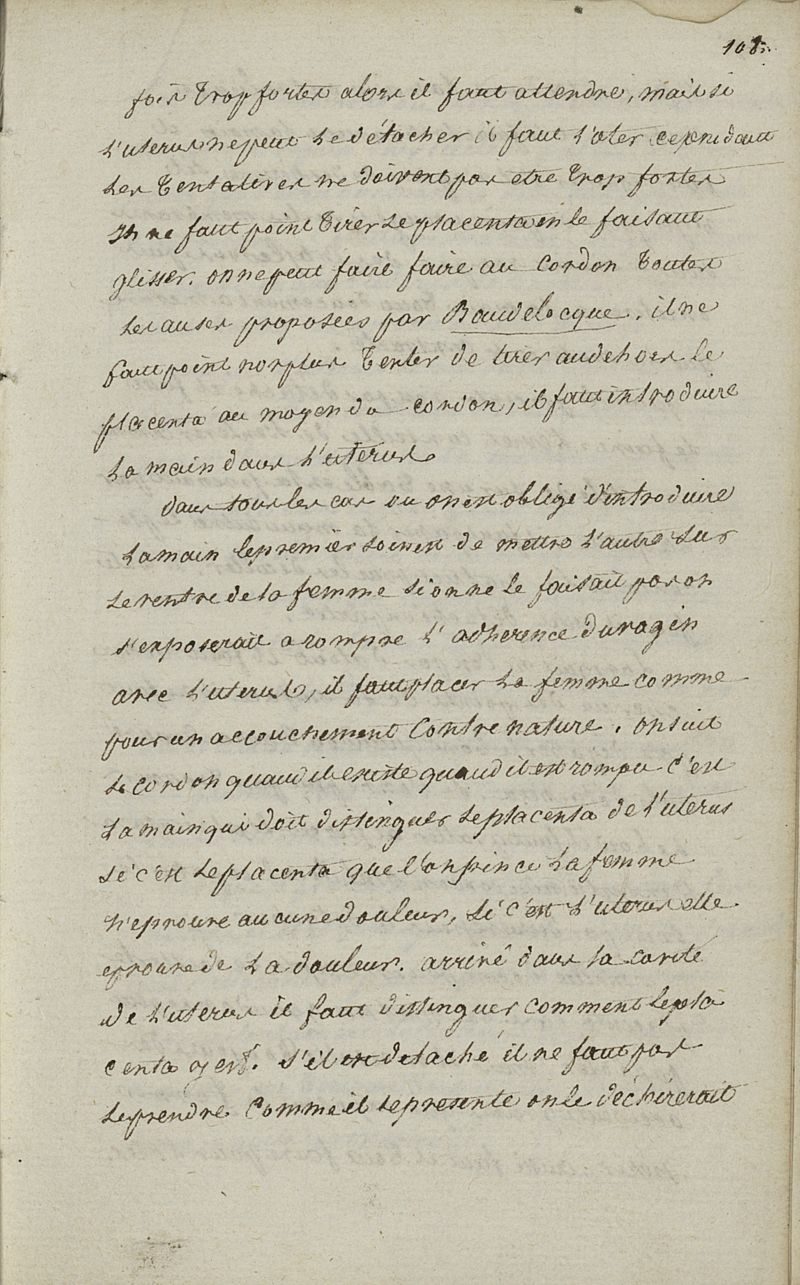 108.
fois trop fortes alors il faut attendre, mais si
l'uterus ne peut le détacher il faut l'oter cependant
les tentatives ne doivent pas etre trop fortes
Il ne faut point tirer le placenta en le faisant
glisser. on ne peut faire faire au cordon toutes
les anses proposées par Baudelocque. il ne
faut point non plus tenter de tirer au dehors le
placenta au moyen du cordon, il faut introduire
la main dans l'uterus.
dans tous les cas ou on est obligé d'introduire
la main le premier soin est de mettre l'autre sur
le ventre de la femme si on ne le faisait pas on
s'exposerait a rompre l'adherence du vagin
avec l'uterus, il faut placer la femme comme
pour un accouchement contre nature. on suit
le cordon quand il existe quand il est rompu c'est
la main qui doit distinguer le placenta de l'uterus
si c'est le placenta que l'on pince la femme
n'eprouve aucune douleur, si c'est l'uterus elle
eprouve de la douleur. arrivé dans la cavité
de l'uterus il faut distinguer comment le pla
centa y est. s'il est detaché il ne faut pas
le prendre comme il se presente on le déchirerait